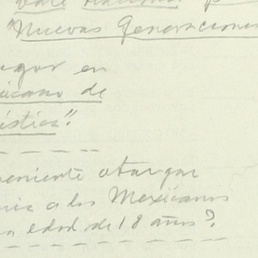 "Nuevas Generaciones
lugar en
icano de
ística".
eniente otorgar
a los Mexicanos
edad de 18 años?